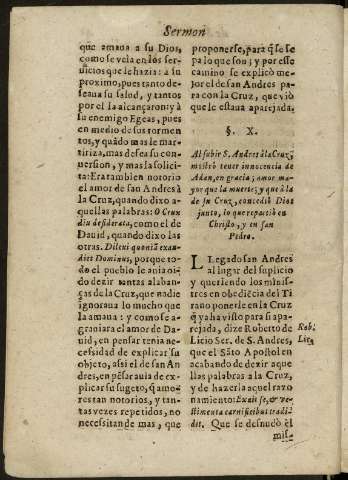 Sermon
que amaua a su Dios,
como se vela en los ser
uicios que le hazia: a su
proximo, pues tanto de
seaua su salud, y tantos
por el la alcançaron; y à
su enemigo Egeas, pues
en medio de sus tormen
tos, y quãdo mas le mar
tiriza, mas desea su con
uersion, y mas la solici
ta: Era tambien notorio
el amor de san Andres à
la Cruz, quando dixo a-
quellas palabras: O Crux
diu desiderata, como el de
Dauid, quando dixo las
otras. Dilexi quoniã exau
diet Dominus, porque to-
do el pueblo le auia oi-
do dezir tantas alaban-
ças de la Cruz, que nadie
ignoraua lo mucho que
la amaua: y como se a-
grauiara el amor de Da-
uid, en pensar tenia ne-
cessidad de explicar su
objeto, assi el de san An
dres, en pẽsar auia de ex-
plicar su sugeto, q̃ amo-
res tan notorios, y tan-
tas vezes repetidos, no
necessitan de mas, que
proponerse, para q̃ se se
pa lo que son; y por esse
camino se explicò me-
jor el de san Andres pa-
ra con la Cruz, que viò
que le estaua aparejada.
§. X.
Al subir S. Andres à la Cruz,
mostrò tener innocencia de
Adan, en gracia; amor ma-
yor que la muerte; y que à la
de su Cruz, concediò Dios
junto, lo que repartiò en
Christo, y en san
Pedro.
LLegado san Andres
al lugar del suplicio
y queriendo los minis-
tres en obediẽcia del Ti
rano ponerle en la Cruz
q̃ ya ha visto para si apa-
rejada, dize Roberto de
Licio Ser. de S. Andres,
que el Sãto Apostol en
acabando de dezir aque
llas palabras a la Cruz,
y de hazerla aquel razo
namiento: Exuit se, & ve-
stimenta carnificibus tradi-
dit. Que se desnudò el
Rob.
Lic.
mis-